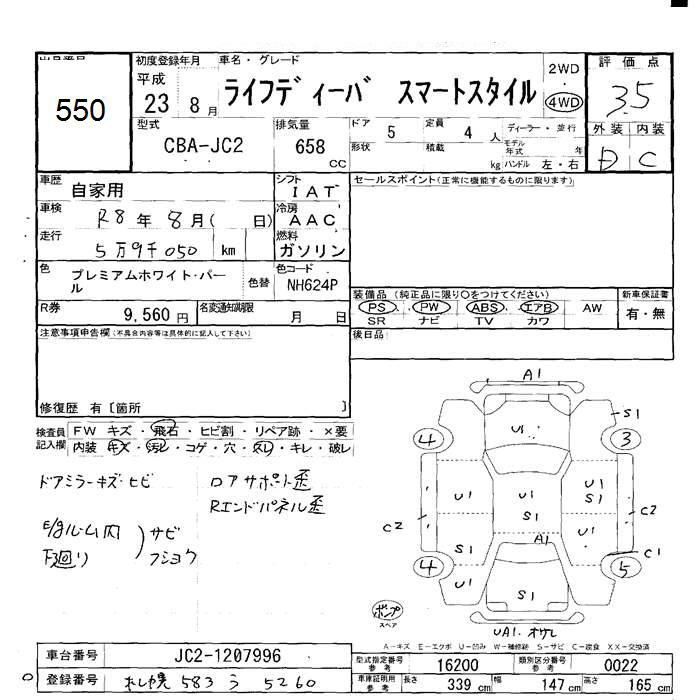 出品番号 550
初度登録年月 平成 23 8 月
車名・グレード ライフディーバ スマートスタイル
2WD 4WD
評価点 3.5
型式 CBA-JC2
排気量 658 CC
ドア 5 定員 4 人
形状 積載 kg
ディーラー・並行
モデル年式 年
ハンドル 左・右
外装 内装
D C
車歴 自家用
シフト IAT
セールスポイント(正常に機能するものに限ります)
車検 R8 年 8 月( 日)
冷房 AAC
走行 5万9千050 km
燃料 ガソリン
色 プレミアムホワイト・パール
色替
色コード NH624P
R券 9,560 円
名変通知期限 月 日
装備品(純正品に限り○をつけてください)
PS PW ABS エアB AW
SR ナビ TV カワ
新車保証書 有・無
注意事項申告欄(不具合内容等は具体的に記入して下さい)
後日品
修復歴 有〔箇所 〕
検査員記入欄
FW キズ・飛石・ヒビ割・リペア跡・×要
内装・キズ・汚レ・コゲ・穴・スレ・キレ・破レ
ドアミラーキズ・ヒビ
ロアサポート歪
Rエンドパネル歪
E/gルーム内
下廻り
サビ
フショク
A1
S1
4 U1 3
U1 U1 U1
S1
C2 S1 C2
S1 A1 U1 C1
4 5
U1 S1 S1
ポンプ
スペア
UA1. オサレ
A−キズ E−エクボ U−凹み W−補修跡 S−サビ C−腐食 XX−交換済
車台番号 JC2-1207996
型式指定番号 参考 16200
類別区分番号 参考 0022
登録番号 札幌 583 う 5260
車庫証明用 参考 長さ 339 cm 幅 147 cm 高さ 165 cm